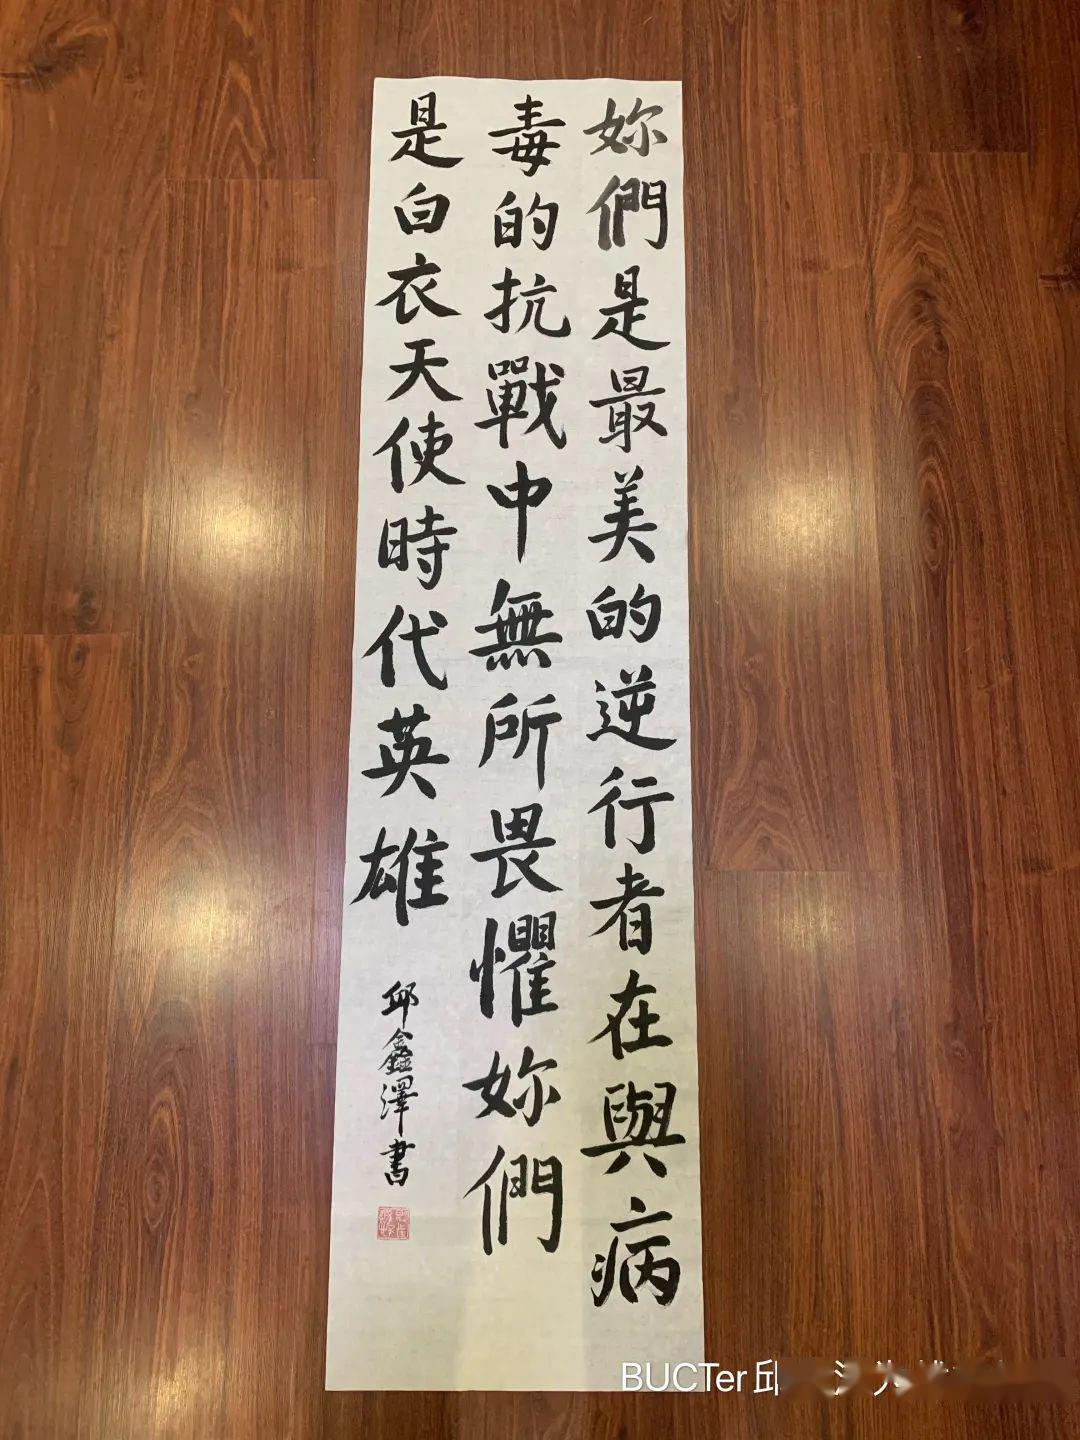 妳們是最美的逆行者在與病
毒的抗戰中無所畏懼妳們
是白衣天使時代英雄
邱鑫澤書
BUCTer 邱